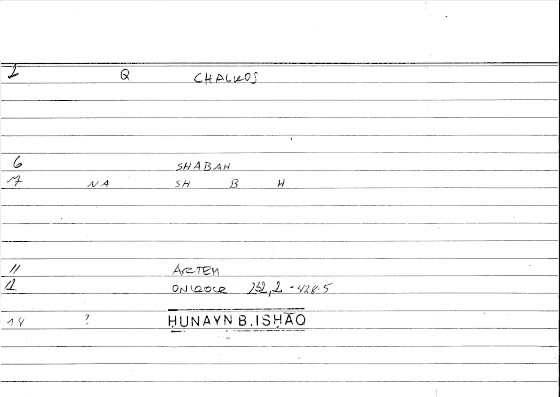 2 Q CHALKOS
6 SHABAH
7 NA SH B H
11 ARTEM
12 ONIROCR 152,2 - 428.5
14 ? ḤUNAYN B. ISḤĀQ